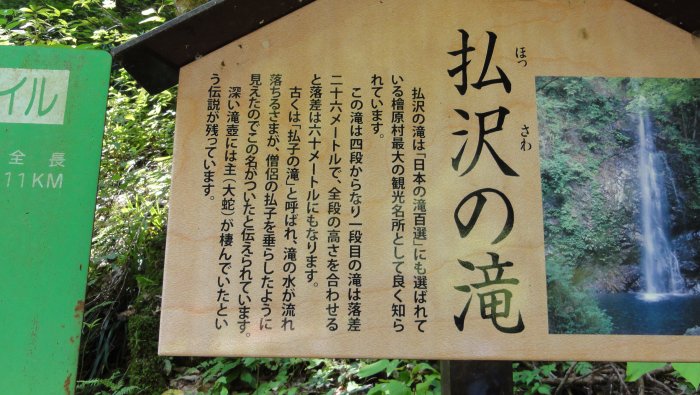 払沢の滝
ほっ
さわ
払沢の滝は「日本の滝百選」にも選ばれて
いる檜原村最大の観光名所として良く知ら
れています。
この滝は四段からなり一段目の滝は落差
二十六メートルで、全段の高さを合わせる
と落差は六十メートルにもなります。
古くは「払子の滝」と呼ばれ、滝の水が流れ
落ちるさまが、僧侶の払子を垂らしたように
見えたのでこの名がついたと伝えられています。
深い滝壺には主（大蛇）が棲んでいたとい
う伝説が残っています。
イル
全長
11KM